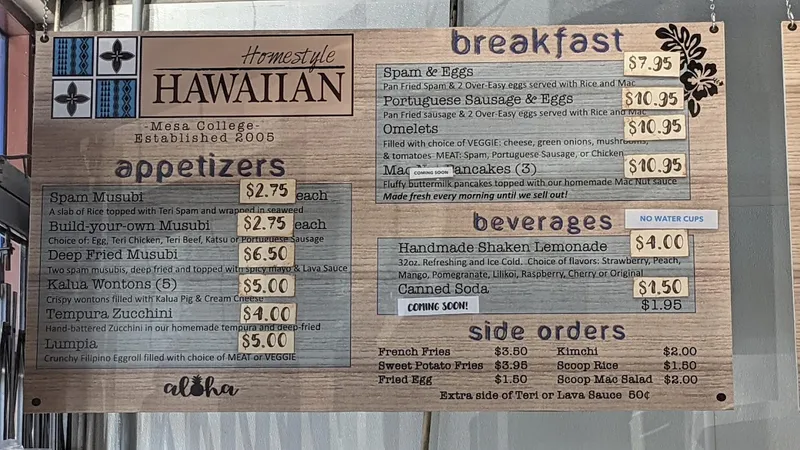 Homestyle
HAWAIIAN
-Mesa College-
Established 2005
appetizers
Spam Musubi $2.75 each
A slab of Rice topped with Teri Spam and wrapped in seaweed
Build-your-own Musubi $2.75 each
Choice of: Egg, Teri Chicken, Teri Beef, Katsu or Portuguese Sausage
Deep Fried Musubi $6.50
Two spam musubis, deep fried and topped with spicy mayo & Lava Sauce
Kalua Wontons (5) $5.00
Crispy wontons filled with Kalua Pig & Cream Cheese
Tempura Zucchini $4.00
Hand-battered Zucchini in our homemade tempura and deep-fried
Lumpia $5.00
Crunchy Filipino Eggroll filled with choice of MEAT or VEGGIE
aloha
breakfast
Spam & Eggs $7.95
Pan Fried Spam & 2 Over-Easy eggs served with Rice and Mac
Portuguese Sausage & Eggs $10.95
Pan Fried sausage & 2 Over-Easy eggs served with Rice and Mac
Omelets $10.95
Filled with choice of VEGGIE: cheese, green onions, mushrooms,
& tomatoes MEAT: Spam, Portuguese Sausage, or Chicken
Mac COMING SOON Pancakes (3) $10.95
Fluffy buttermilk pancakes topped with our homemade Mac Nut sauce
Made fresh every morning until we sell out!
beverages NO WATER CUPS
Handmade Shaken Lemonade $4.00
32oz. Refreshing and Ice Cold. Choice of flavors: Strawberry, Peach,
Mango, Pomegranate, Lilikoi, Raspberry, Cherry or Original
Canned Soda $1.50
COMING SOON! $1.95
side orders
French Fries $3.50 Kimchi $2.00
Sweet Potato Fries $3.95 Scoop Rice $1.50
Fried Egg $1.50 Scoop Mac Salad $2.00
Extra side of Teri or Lava Sauce 50¢